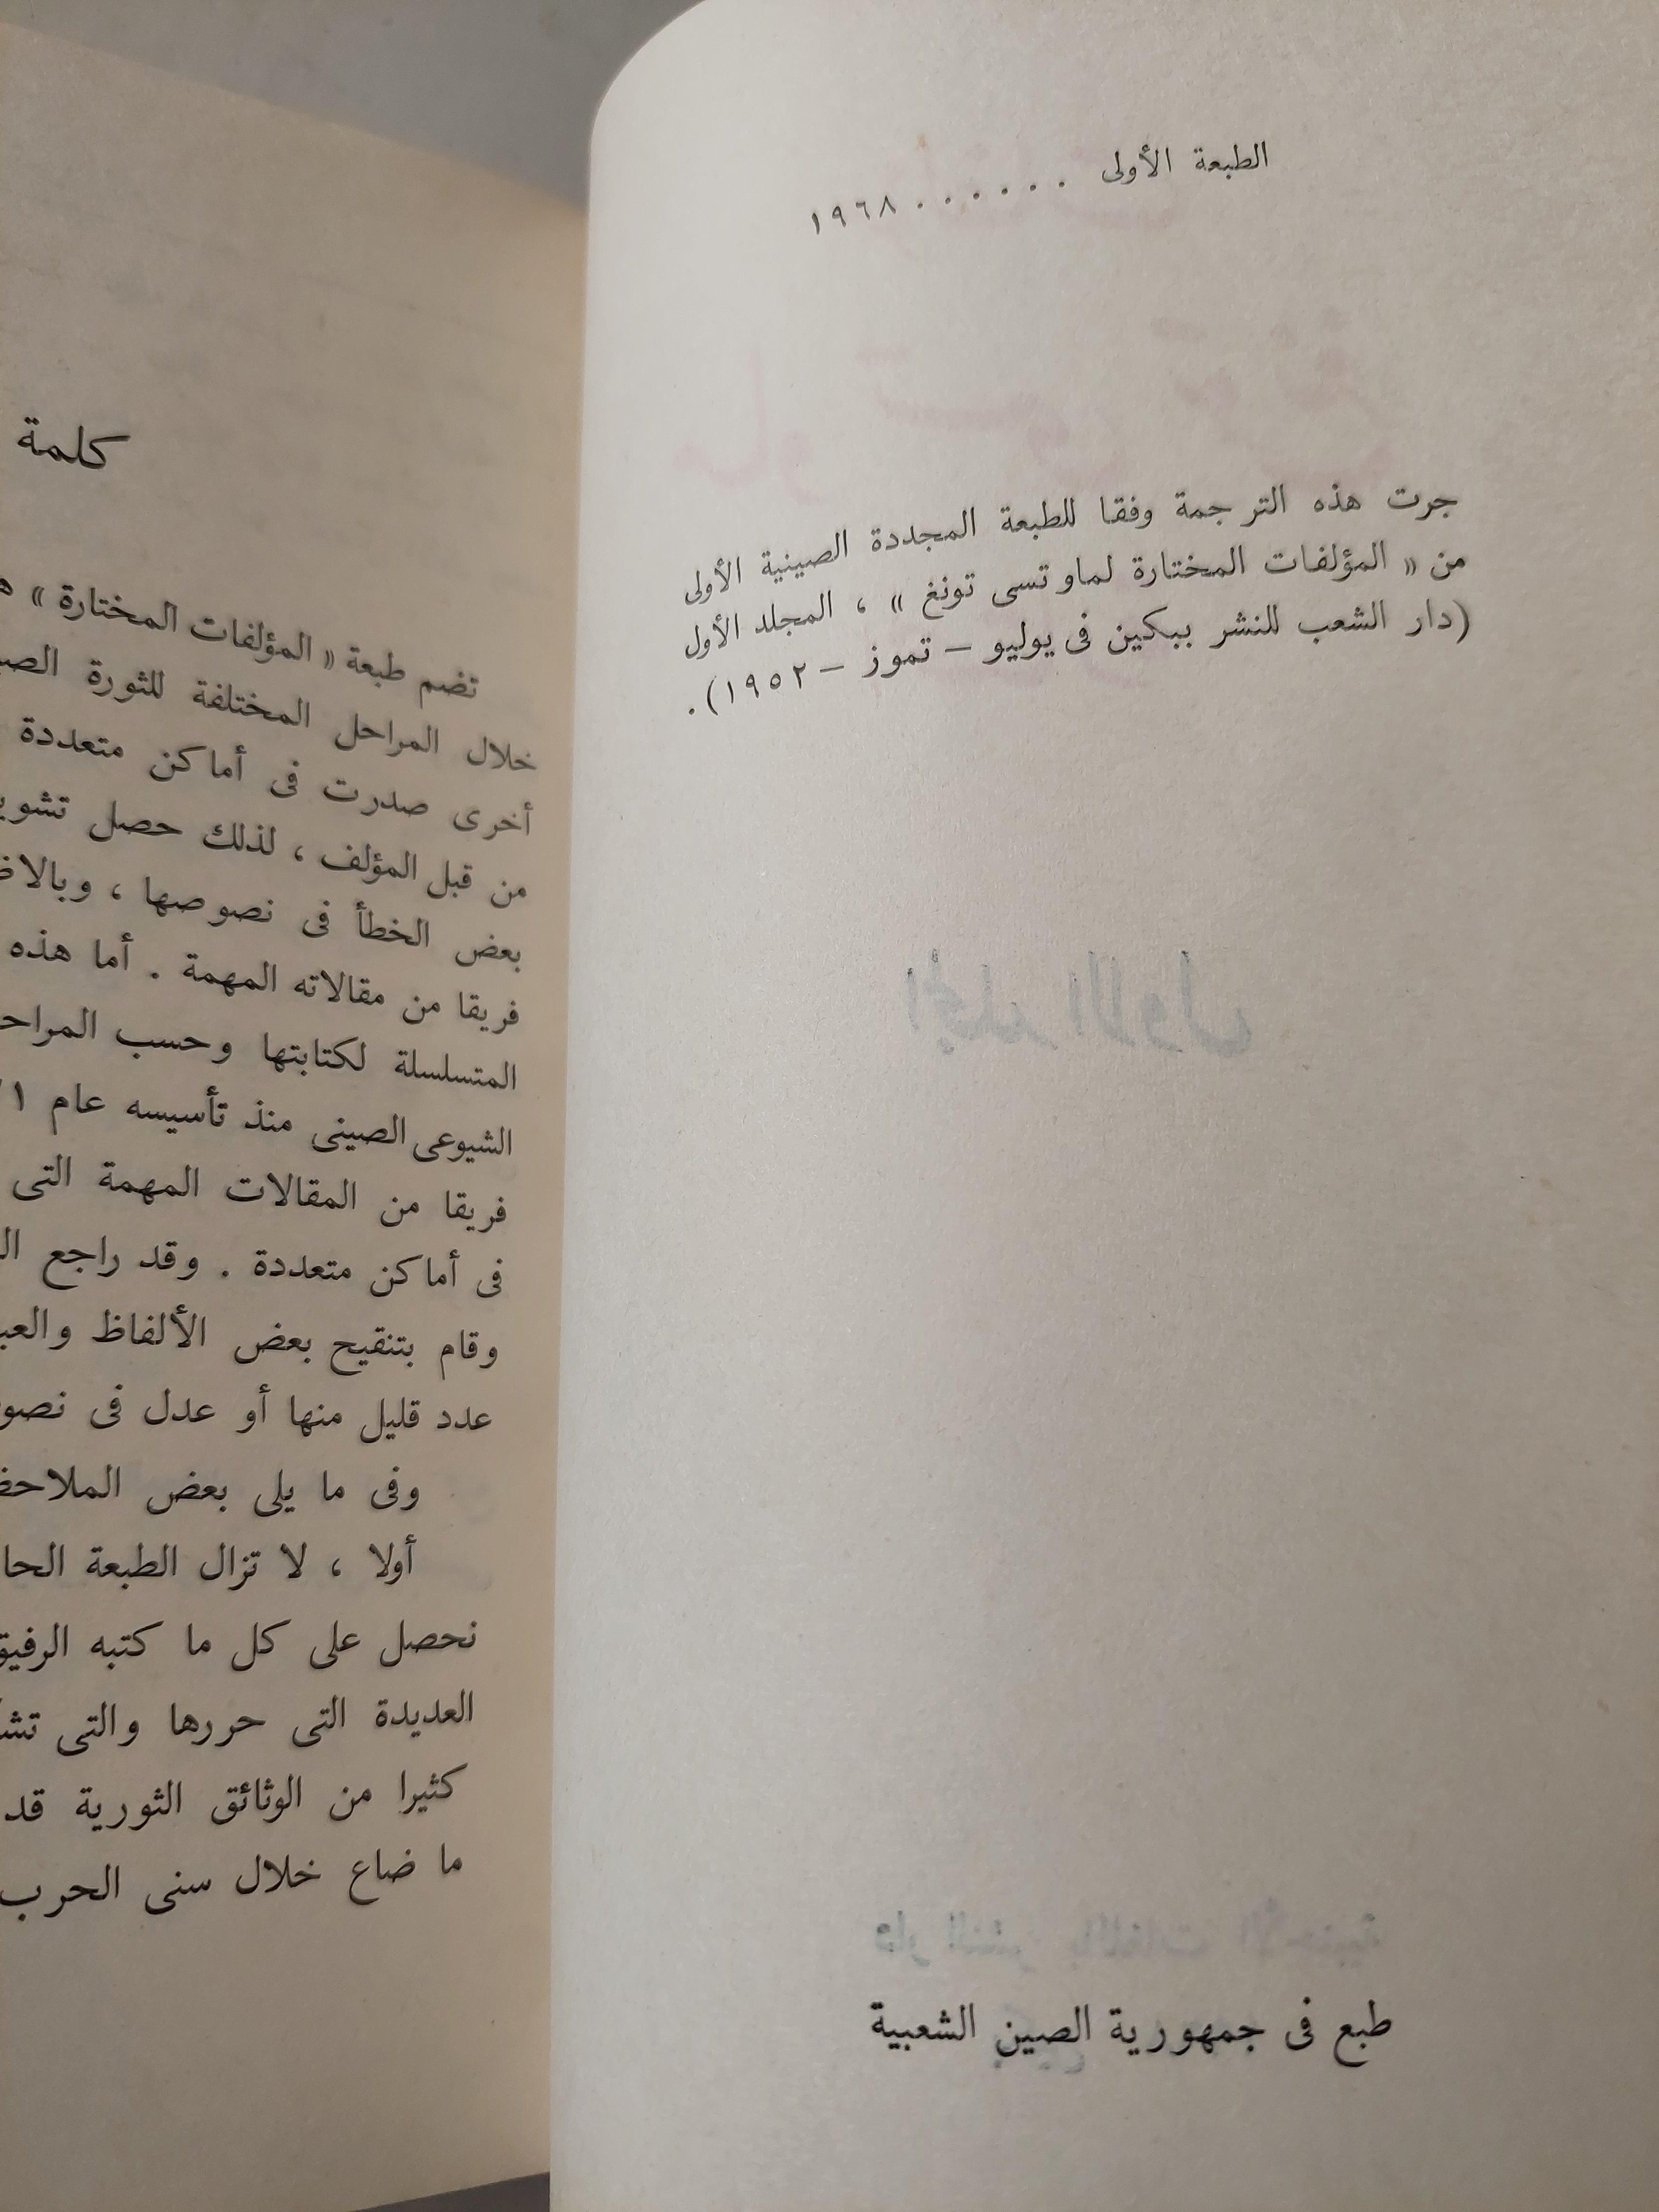 الطبعة الأولى . . . . . . ١٩٦٨
جرت هذه الترجمة وفقا للطبعة المجددة الصينية الأولى
من « المؤلفات المختارة لماو تسى تونغ » ، المجلد الأول
(دار الشعب للنشر ببكين فى يوليو – تموز – ١٩٥٢).
المجلد الاول
دار النشر باللغات الأجنبية
طبع فى جمهورية الصين الشعبية
كلمة
تضم طبعة « المؤلفات المختارة »
خلال المراحل المختلفة للثورة
أخرى صدرت فى أماكن متعددة
من قبل المؤلف ، لذلك حصل
بعض الخطأ فى نصوصها ،
فريقا من مقالاته المهمة . أما هذه
المتسلسلة لكتابتها وحسب
الشيوعى الصينى منذ تأسيسه عام
فريقا من المقالات المهمة التى
فى أماكن متعددة . وقد راجع
وقام بتنقيح بعض الألفاظ
عدد قليل منها أو عدل فى
وفى ما يلى بعض
أولا ، لا تزال الطبعة
نحصل على كل ما كتبه
العديدة التى حررها والتى
كثيرا من الوثائق الثورية قد
ما ضاع خلال سنى الحرب